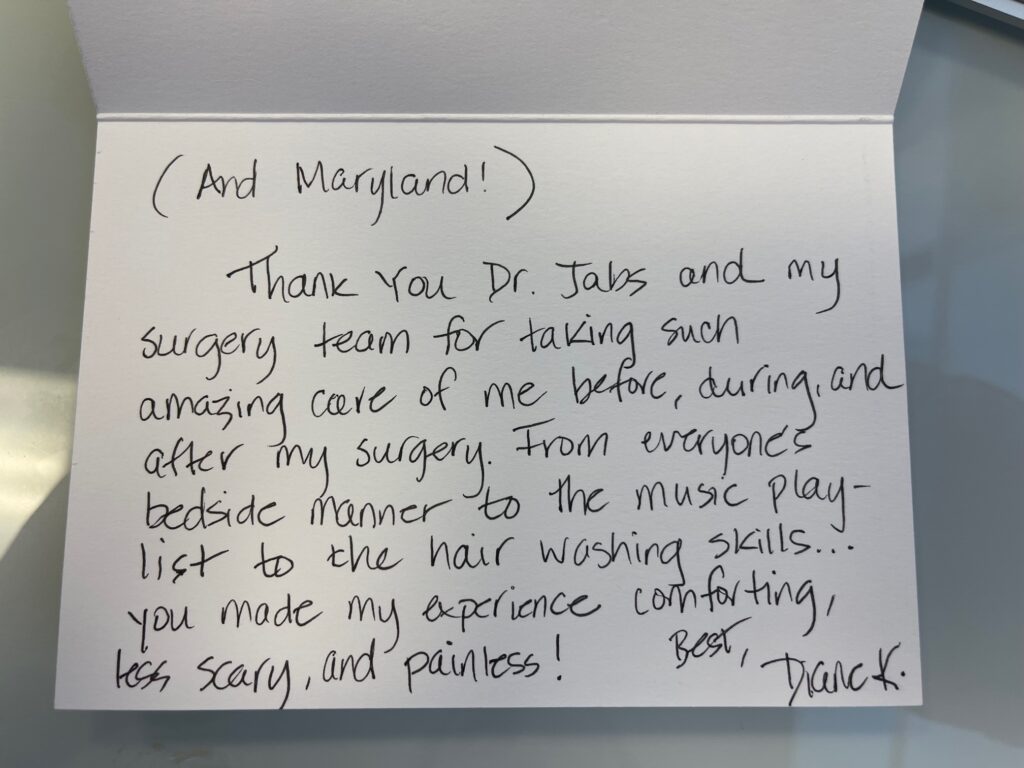 (And Maryland!)
Thank You Dr. Jabs and my
surgery team for taking such
amazing care of me before, during, and
after my surgery. From everyone's
bedside manner to the music play-
list to the hair washing skills...
you made my experience comforting,
less scary, and painless!
Best,
Diane K.